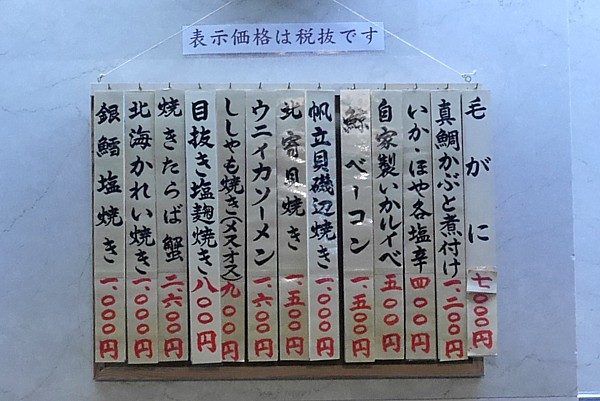 表示価格は税抜です
毛がに 七、〇〇〇円
真鯛かぶと煮付け 一、二〇〇円
いか・ほや各塩辛 四〇〇円
自家製いかルイベ 五〇〇円
鯨ベーコン 一、五〇〇円
帆立貝磯辺焼き 一、〇〇〇円
北寄貝焼き 一、五〇〇円
ウニイカソーメン 一、六〇〇円
ししゃも焼き(メスオス) 九〇〇円
目抜き塩麹焼き 八〇〇円
焼きたらば蟹 二、六〇〇円
北海かれい焼き 一、〇〇〇円
銀鱈塩焼き 一、〇〇〇円